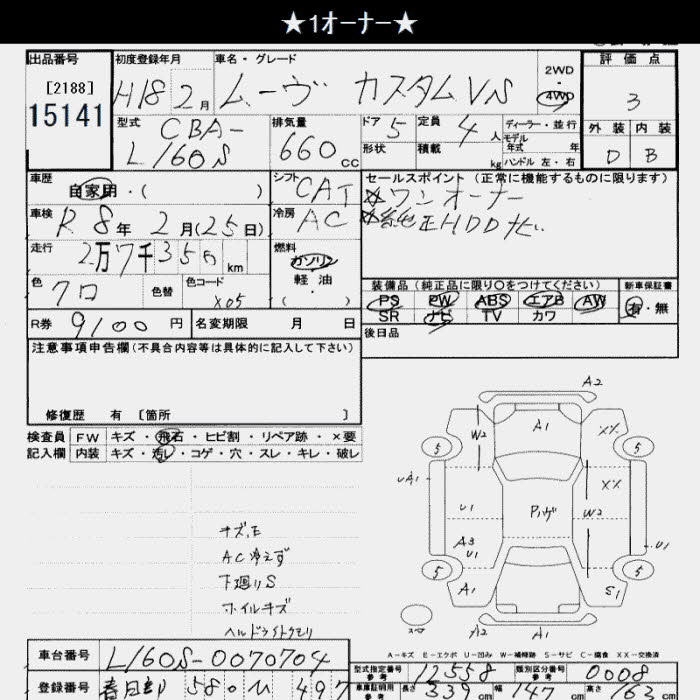 ★1オーナー★
出品番号 初度登録年月 車名・グレード 評価点
[2188]
15141
H18 2月 ムーヴ カスタム VS 2WD 4WD 3
型式 CBA-L160S 排気量 660cc ドア 5 定員 4人 ディーラー・並行 外装 内装
形状 積載 kg モデル年式 年 ハンドル 左・右 D B
車歴 自家用・( ) シフト CAT セールスポイント (正常に機能するものに限ります)
☆ワンオーナー
車検 R8年2月(25日) 冷房 AC
走行 2万7千35 km 燃料 ガソリン 軽油 ( )
装備品 (純正品に限り○をつけてください) 新車保証書
色 クロ 色替 色コード X05 PS PW ABS エアB AW 有・無
SR ナビ TV カワ
R券 9100円 名変期限 月 日 後日品
注意事項申告欄(不具合内容等は具体的に記入して下さい)
修復歴 有 [箇所 ]
検査員 FW キズ・飛石・ヒビ割・リペア跡・×要
記入欄 内装 キズ・汚レ・コゲ・穴・スレ・キレ・破レ
A2
W2 A1 XX
5 5
UA1 XX
U1 Pハゲ W2
A3 U1 U1
5 5
A1 S1
スペア A2 A1
キズ,E
AC冷えず
下廻りS
ホイルキズ
ヘッドライトクモリ
A-キズ E-エクボ U-凹み W-補修跡 S-サビ C-腐食 XX-交換済
車台番号 L160S-0070704 型式指定番号 参考 12558 類別区分番号 参考 0008
登録番号 春日部 580 ひ 497 車庫証明用 参考 長さ 339cm 幅 147cm 高さ